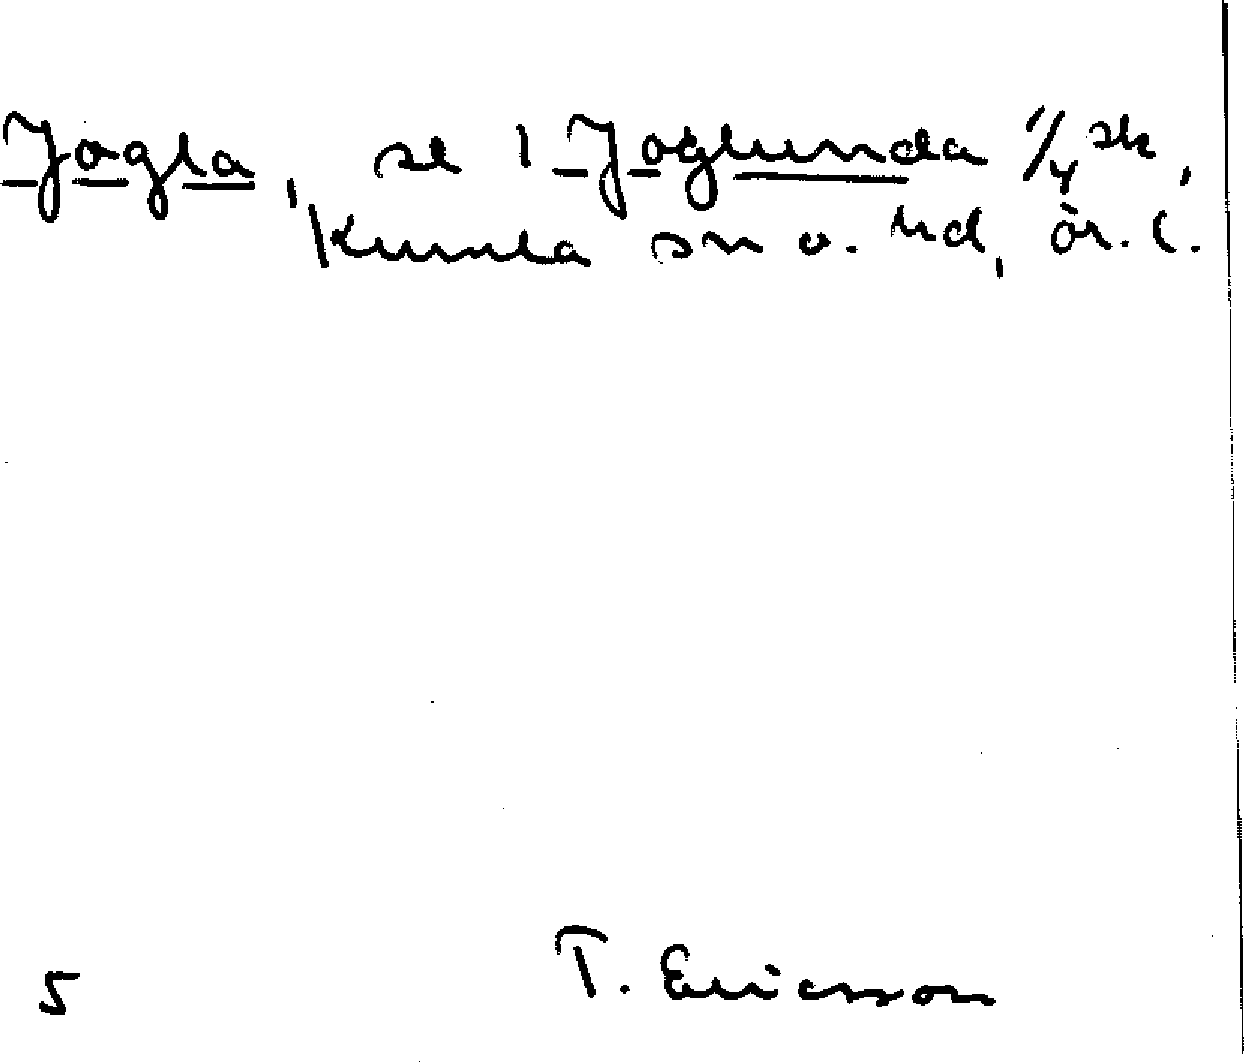 Jogla, se 1 Joglunda 1/4 sk,
Kumla sn o. hd, ör. l.
5
T. Ericsson